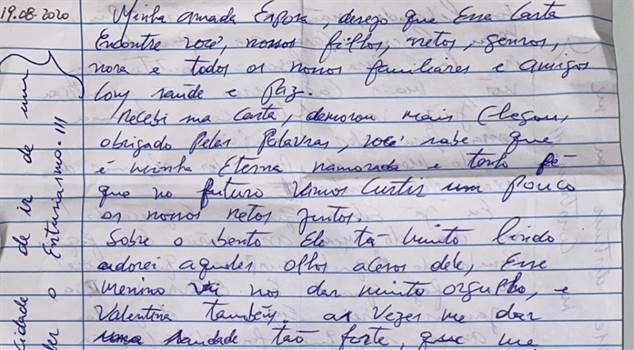 19.08-2020
Minha amada Esposa, desejo que Esse Carta
Encontre você, nossos filhos, netos, genros,
nora e todos os nossos familiares e amigos
com saúde e paz.
Recebi sua Carta, demorou mais Chegou,
obrigado pelas palavras, você sabe que
é minha Eterna namorada e tenho fé
que no futuro vamos Curtir um pouco
os nossos netos juntos.
Sobre o bento Ele tá muito lindo
adorei aqueles olhos acesos dele, Esse
menino vai nos dar muito orgulho, e
Valentina também, as vezes me dar
saudade tão forte, que me
cidade de ir de um
der o Entusiasmo.!!!